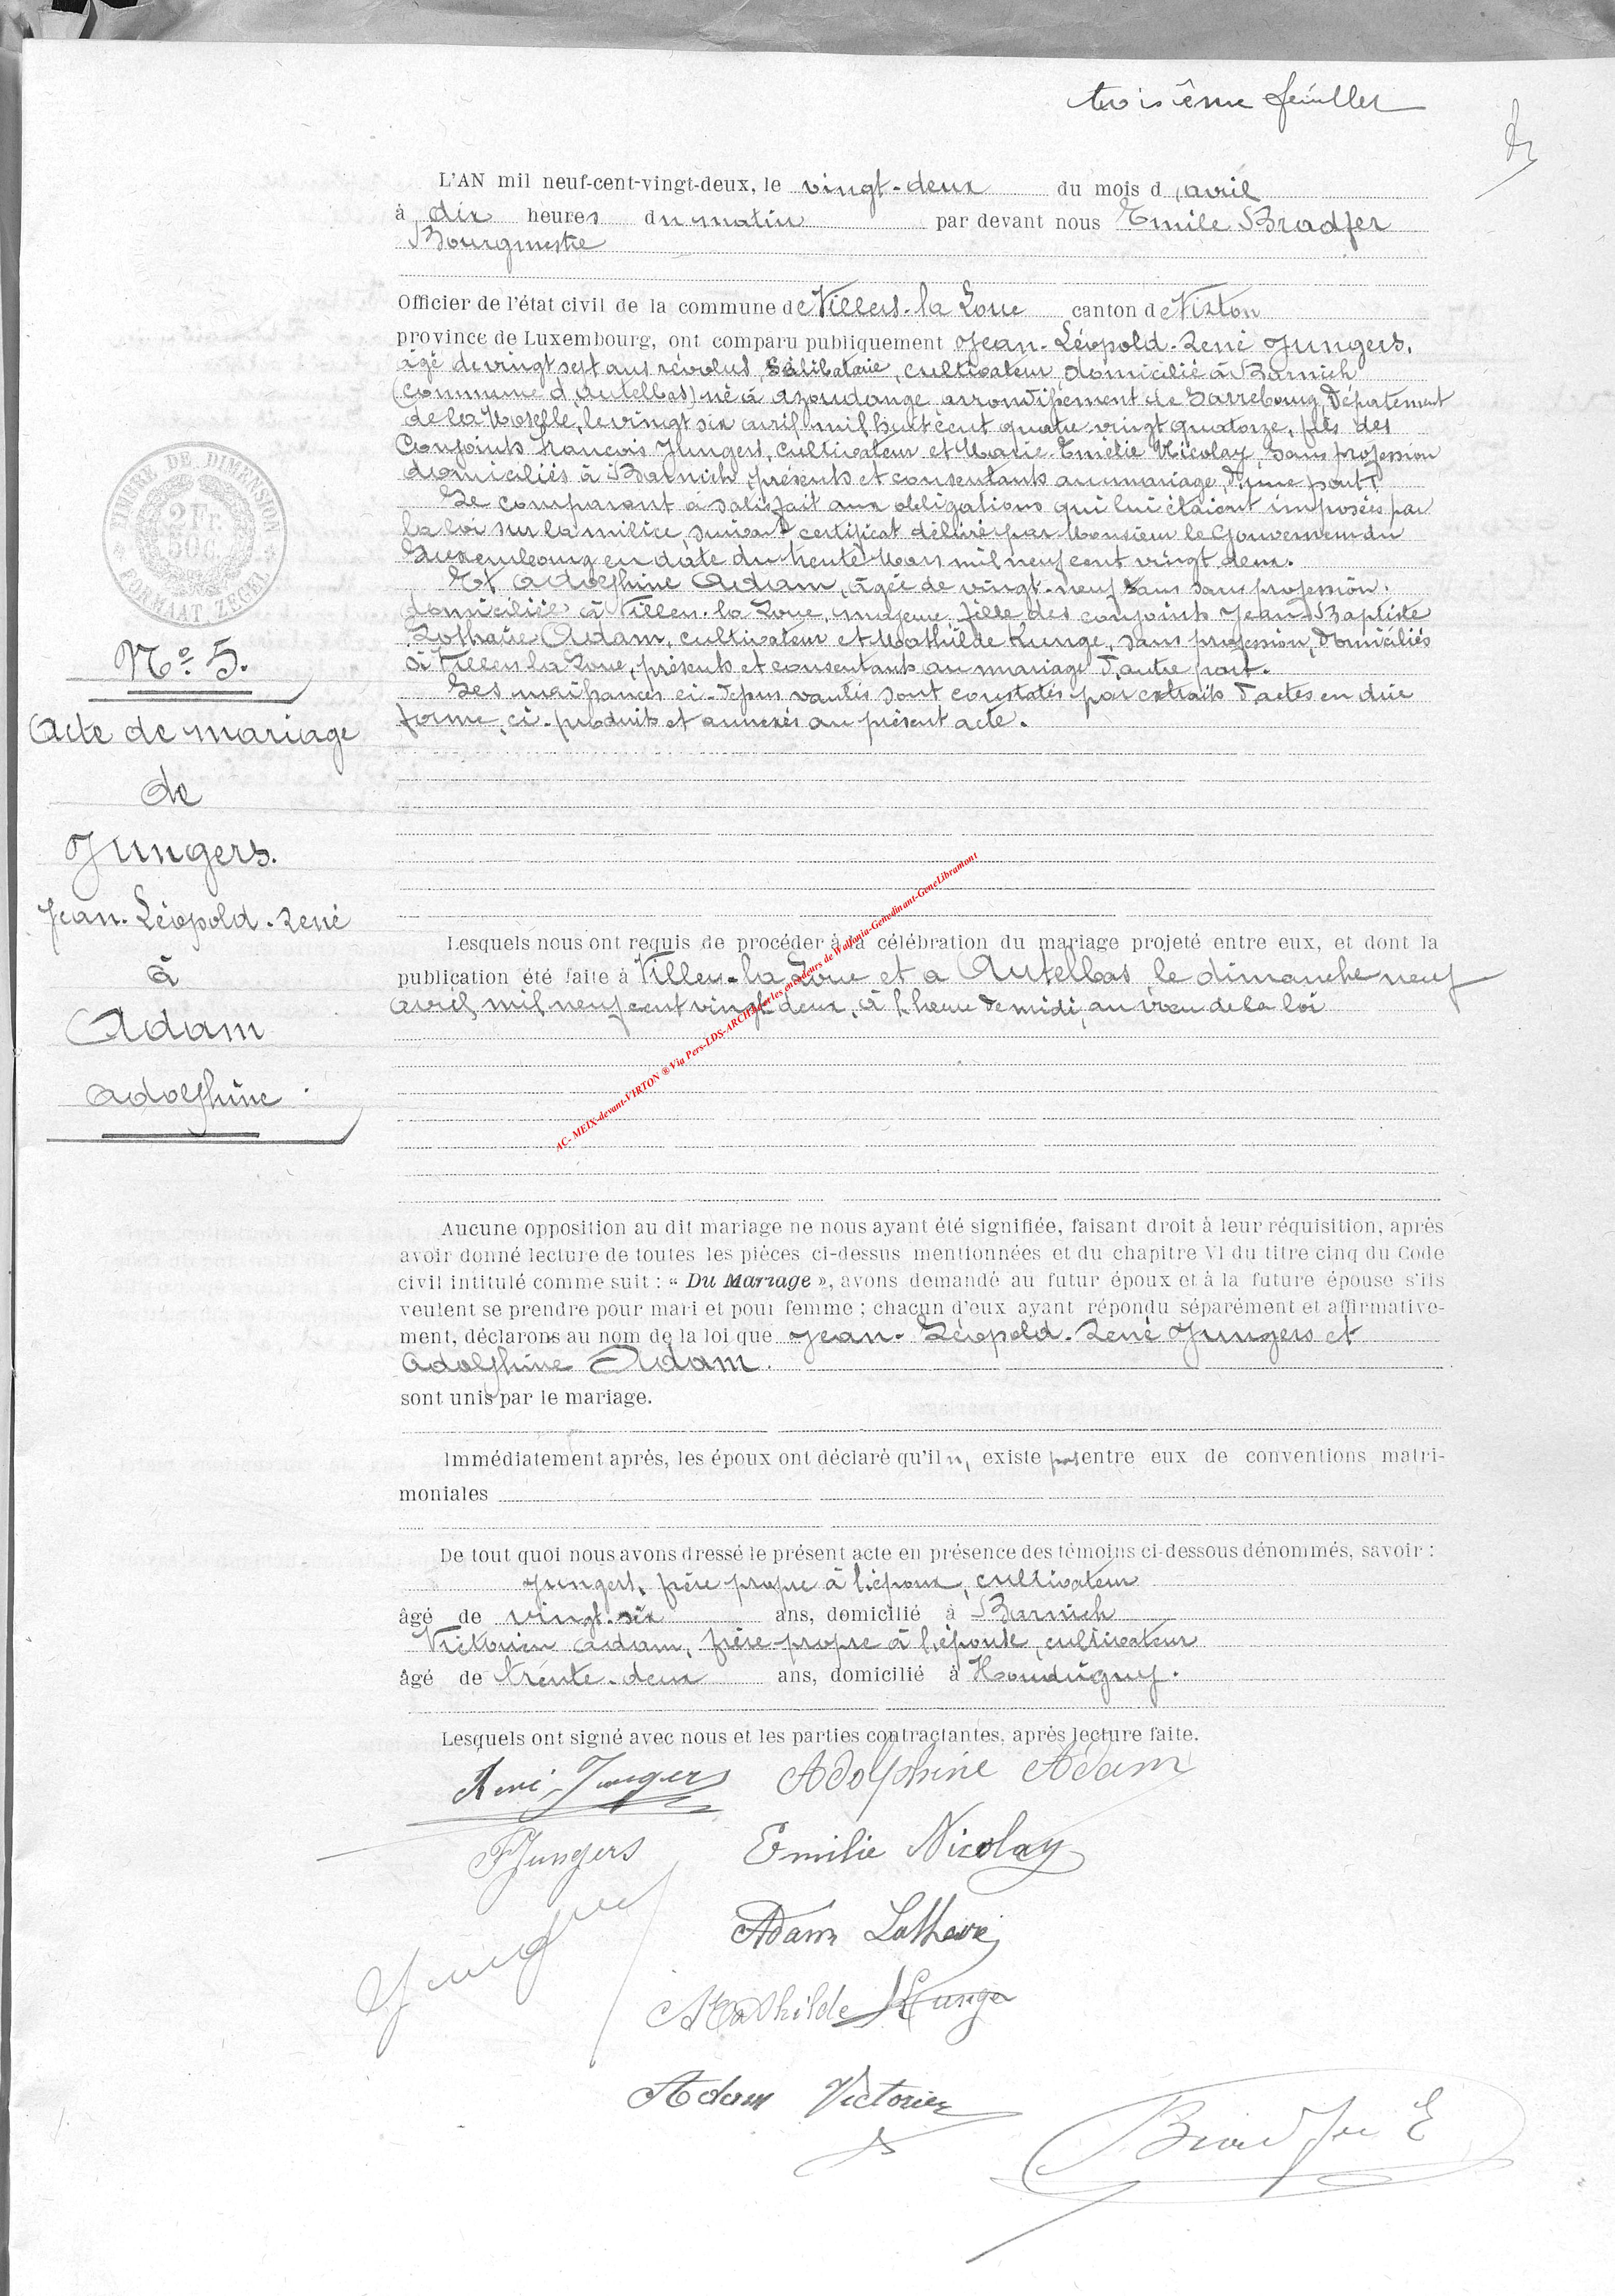 troisième feuillet
L'AN mil neuf-cent-vingt-deux, le vingt-deux du mois d'avril
à dix heures du matin par devant nous Emile Bradfer
Bourgmestre
Officier de l'état civil de la commune de Villers-la Loue canton de Virton
province de Luxembourg, ont comparu publiquement Jean-Léopold-René Jungers,
âgé de vingt sept ans révolus, célibataire, cultivateur, domicilié à Barnich
(commune d'Autelbas) né à Azoudange arrondissement de Sarrebourg, Département
de la Moselle, le vingt six avril mil huit cent quatre vingt quatorze, fils des
Conjoints François Jungers, cultivateur et Marie-Emélie Nicolay, sans profession
domiciliés à Barnich, présents et consentants au mariage, d'une part.
Le comparant a satisfait aux obligations qui lui étaient imposées par
la loi sur la milice, suivant certificat délivré par Monsieur le Gouverneur du
Luxembourg en date du trente Mars mil neuf cent vingt deux.
Et Adolphine Adam, âgée de vingt-neuf ans sans profession,
domiciliée à Villers-la Loue, majeure, fille des conjoints Jean-Baptiste
Lothaire Adam, cultivateur et Mathilde Kunge, sans profession, domiciliés
à Villers la Loue, présents et consentants au mariage d'autre part.
Les naissances ci-dessus vantées sont constatées par extraits d'actes en due
forme, ci-produits et annexés au présent acte.
TIMBRE DE DIMENSION
2 Fr.
50 C.
FORMAAT ZEGEL
N° 5.
Acte de mariage
de
Jungers.
Jean-Léopold-René
à
Adam
Adolphine
Lesquels nous ont requis de procéder à la célébration du mariage projeté entre eux, et dont la
publication été faite à Villers-la Loue et a Autelbas le dimanche neuf
avril mil neuf cent vingt deux, à l'heure de midi, au vœu de la loi
AC- MEIX-devant-VIRTON ® Via Pers-LDS-ARCH par les encodeurs de Wallonia-Genedinant-GeneLibramont
Aucune opposition au dit mariage ne nous ayant été signifiée, faisant droit à leur réquisition, après
avoir donné lecture de toutes les pièces ci-dessus mentionnées et du chapitre VI du titre cinq du Code
civil intitulé comme suit : « Du Mariage », avons demandé au futur époux et à la future épouse s'ils
veulent se prendre pour mari et pour femme ; chacun d'eux ayant répondu séparément et affirmative-
ment, déclarons au nom de la loi que Jean-Léopold-René Jungers et
Adolphine Adam.
sont unis par le mariage.
Immédiatement après, les époux ont déclaré qu'il n' existe pas entre eux de conventions matri-
moniales
De tout quoi nous avons dressé le présent acte en présence des témoins ci-dessous dénommés, savoir :
Jungers, frère propre à l'époux, cultivateur
âgé de vingt-six ans, domicilié à Barnich
Victorien Adam, frère propre à l'épouse, cultivateur
âgé de trente-deux ans, domicilié à Houdrigny.
Lesquels ont signé avec nous et les parties contractantes, après lecture faite.
René Jungers Adolphine Adam
FJungers Emilie Nicolay
Jungers
Adam Lothaire
Mathilde Kunge
Adam Victorien
Bradfer E